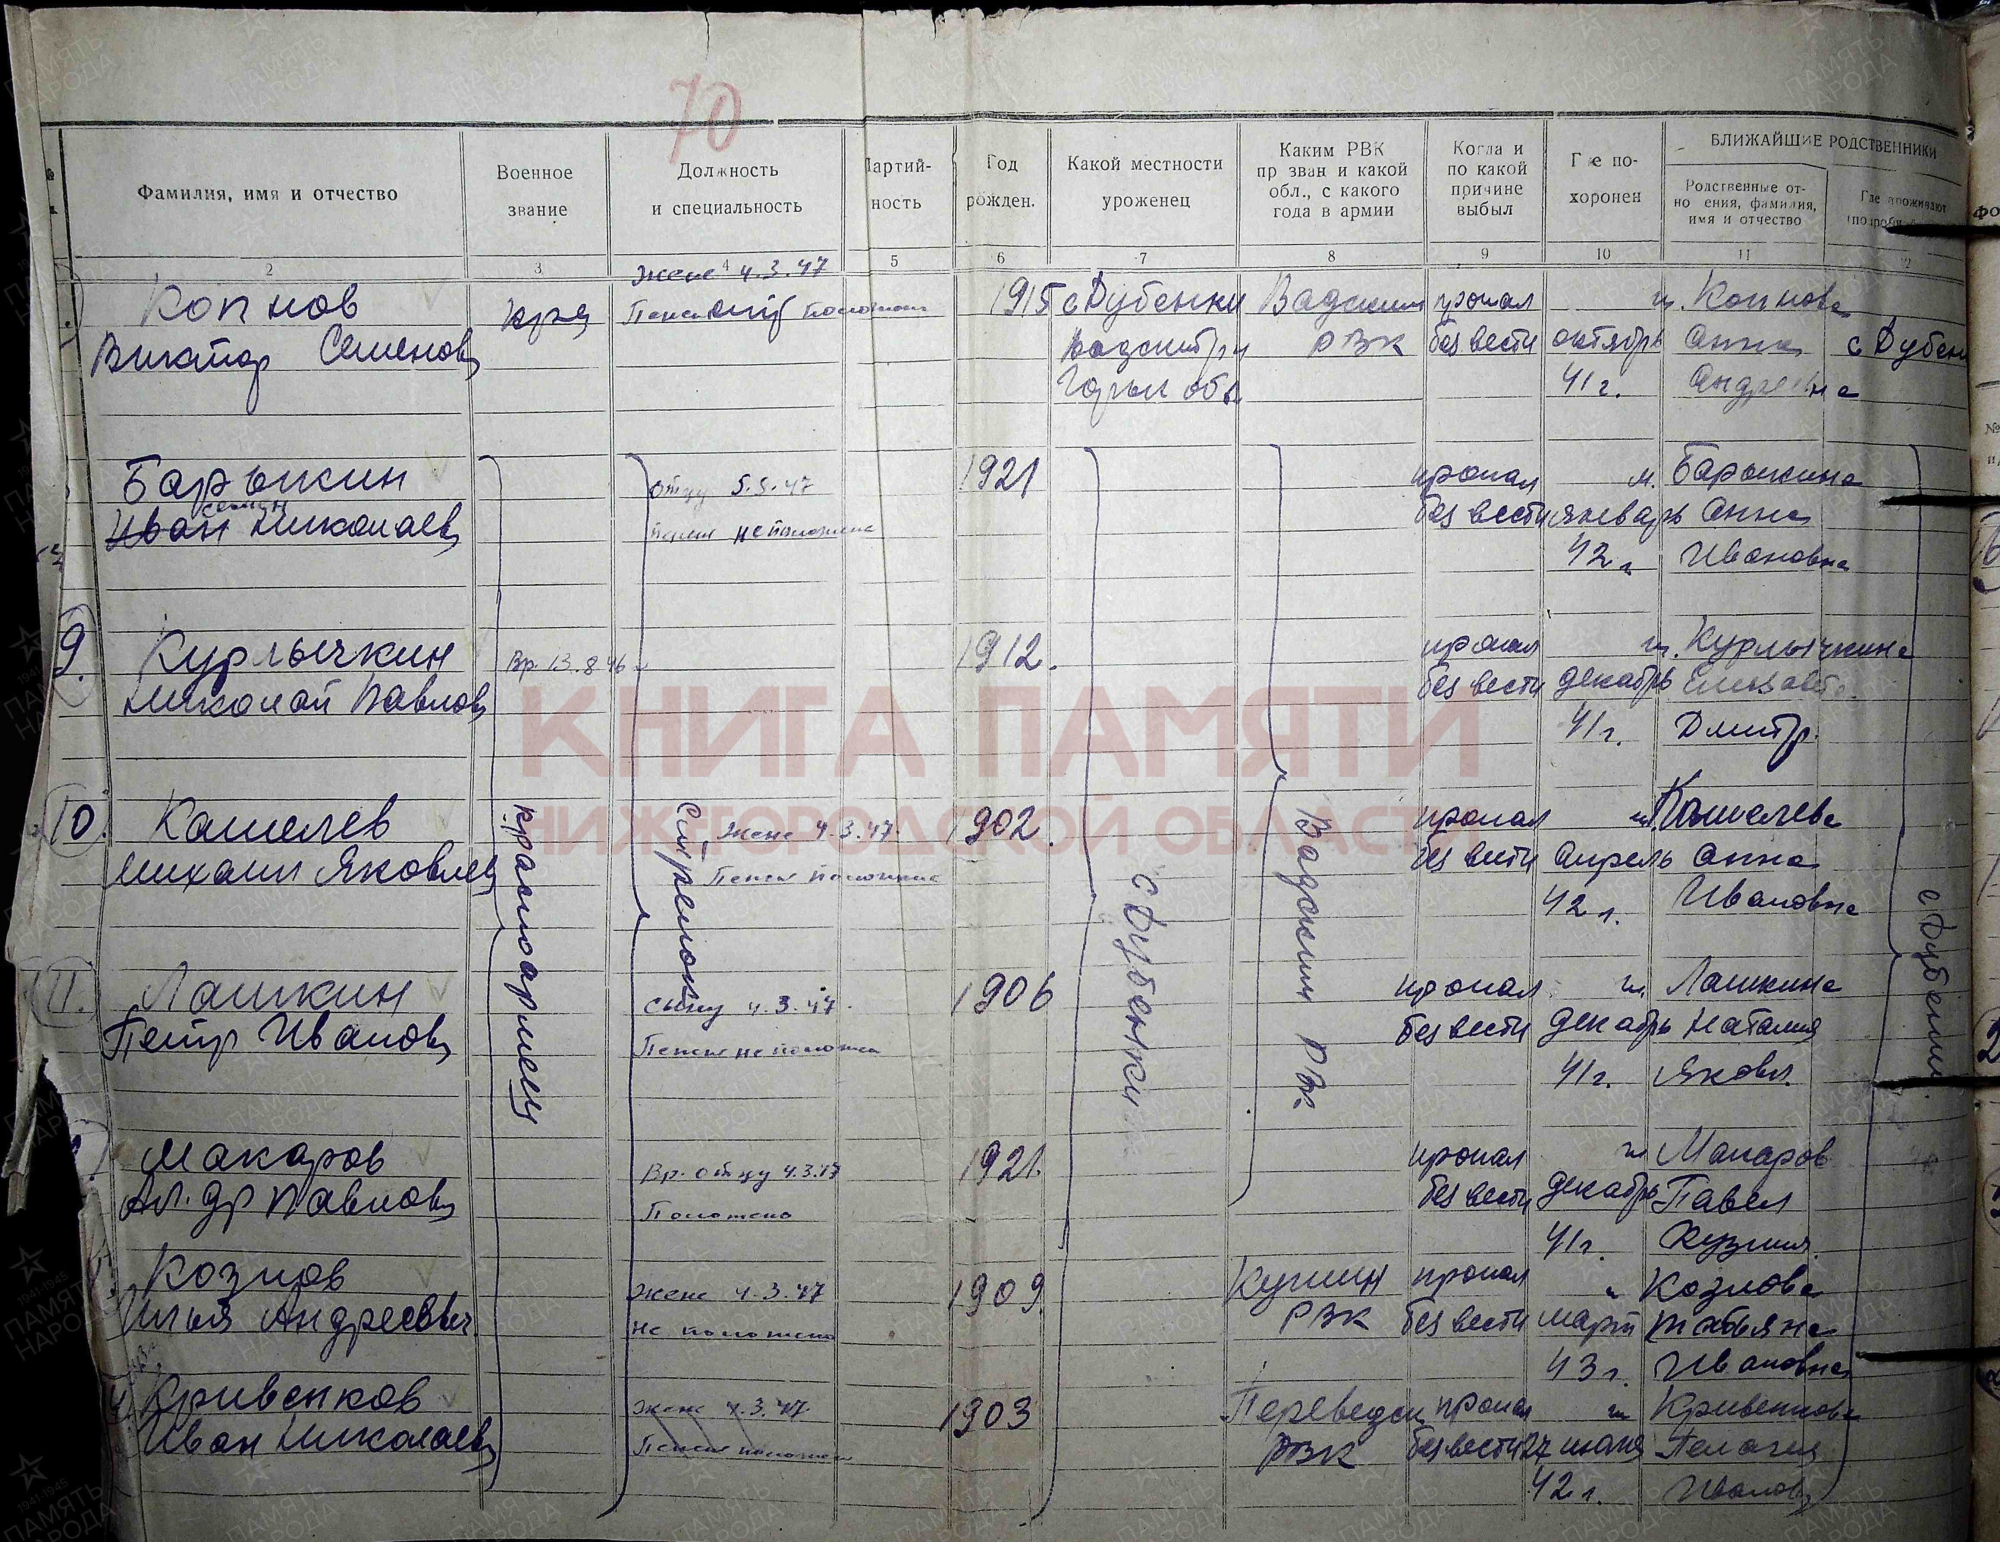 70
БЛИЖАЙШИЕ РОДСТВЕННИКИ
Фамилия, имя и отчество
Военное звание
Должность и специальность
Год рожден.
Какой местности уроженец
Каким РВК пр зван и какой обл., с какого года в армии
Когда и по какой причине выбыл
Где по-хоронен
Родственные от-но ения, фамилия, имя и отчество
Где проживают
2 3 4 5 6 7 8 9 10 11
Жене 4.3.47
Копнов 1915 с Дубенки Вадским пропал Копнова
Виктор Семенов РВК без вести октябрь Анна с Дубен
41 г. Андреевна
Барыкин отцу 5.5.47 1921 пропал м. Барыкина
семен
Иван Николаев не положена без вести январь Анна
42 г Ивановна
9. Курлычкин Вр. 13.8.46 1912. пропал Курлычкина
Николай Павлов без вести декабрь
41 г. Дмитр.
КНИГА ПАМЯТИ
НИЖГОРОДСКОЙ ОБЛАСТИ
10. Кашелев Жене 4.3.47 1902. пропал Кашелева
Михаил Яковлев без вести апрель Анна
42 г. Ивановна
красноармеец
Стрелок
с Дубенки
Вадским РВК
с Дубенки
11. Лашкин сыну 4.3.47 1906 пропал Лашкина
Петр Иванов без вести декабрь Наталия
41 г. Яковл.
Макаров Вр. отцу 4.3.47 1921. пропал Макаров
Ал-др Павлов Положено без вести декабрь Павел
41 г. Кузмич.
Козлов Жене 4.3.47 1909. пропал Козлова
Илья Андреевич не положено РВК без вести март Татьяна
43 г. Ивановна
Кривенков Жене 4.3.47 1903 пропал Кривенкова
Иван Николаев РВК без вести 27 июня Пелагея
42 г. Иванов